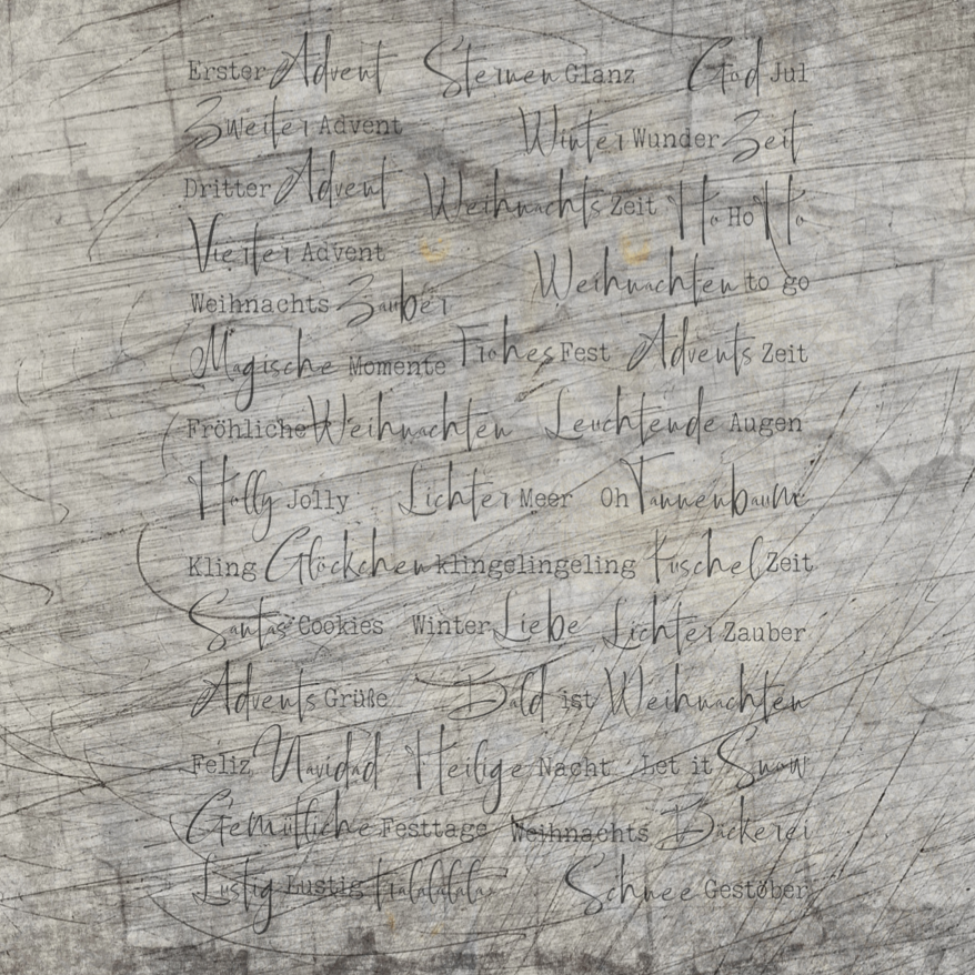 Erster Advent Sternen Glanz God Jul
Zweiter Advent Winter Wunder Zeit
Dritter Advent Weihnachts Zeit Ho Ho Ho
Vierter Advent
Weihnachts Zauber Weihnachten to go
Magische Momente Frohes Fest Advents Zeit
Fröhliche Weihnachten Leuchtende Augen
Holly Jolly Lichter Meer Oh Tannenbaum
Kling Glöckchen klingelingeling Kuschel Zeit
Santas Cookies Winter Liebe Lichter Zauber
Advents Grüße Bald ist Weihnachten
Feliz Navidad Heilige Nacht Let it Snow
Gemütliche Festtage Weihnachts Bäckerei
Lustig Lustig tralalalala Schnee Gestöber